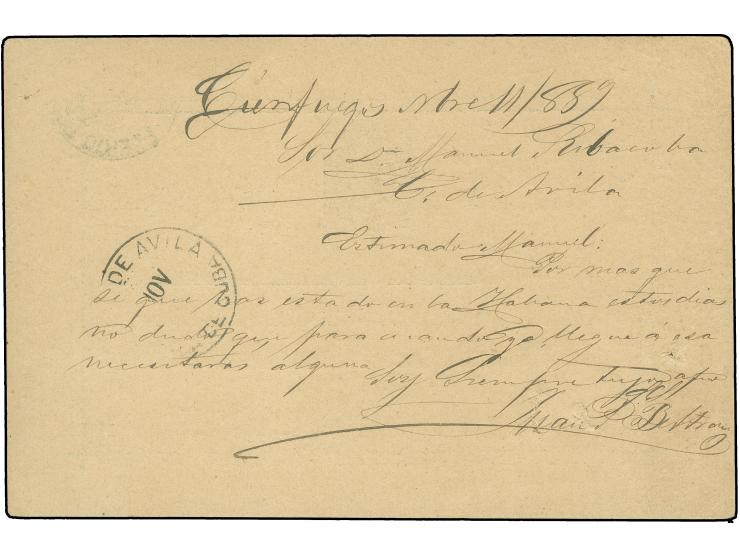 Cienfuegos Nbre 11/889
Sor Dn Manuel Ribacoba
C. de Avila
Estimado Manuel:
Por mas que
se que has estado en la Habana estos dias
no dudo que para cuando yo llegue á esa
necesitaras alguna Soy Siempre tuyo afmo
Juan Beltran
DE AVILA CUBA
NOV